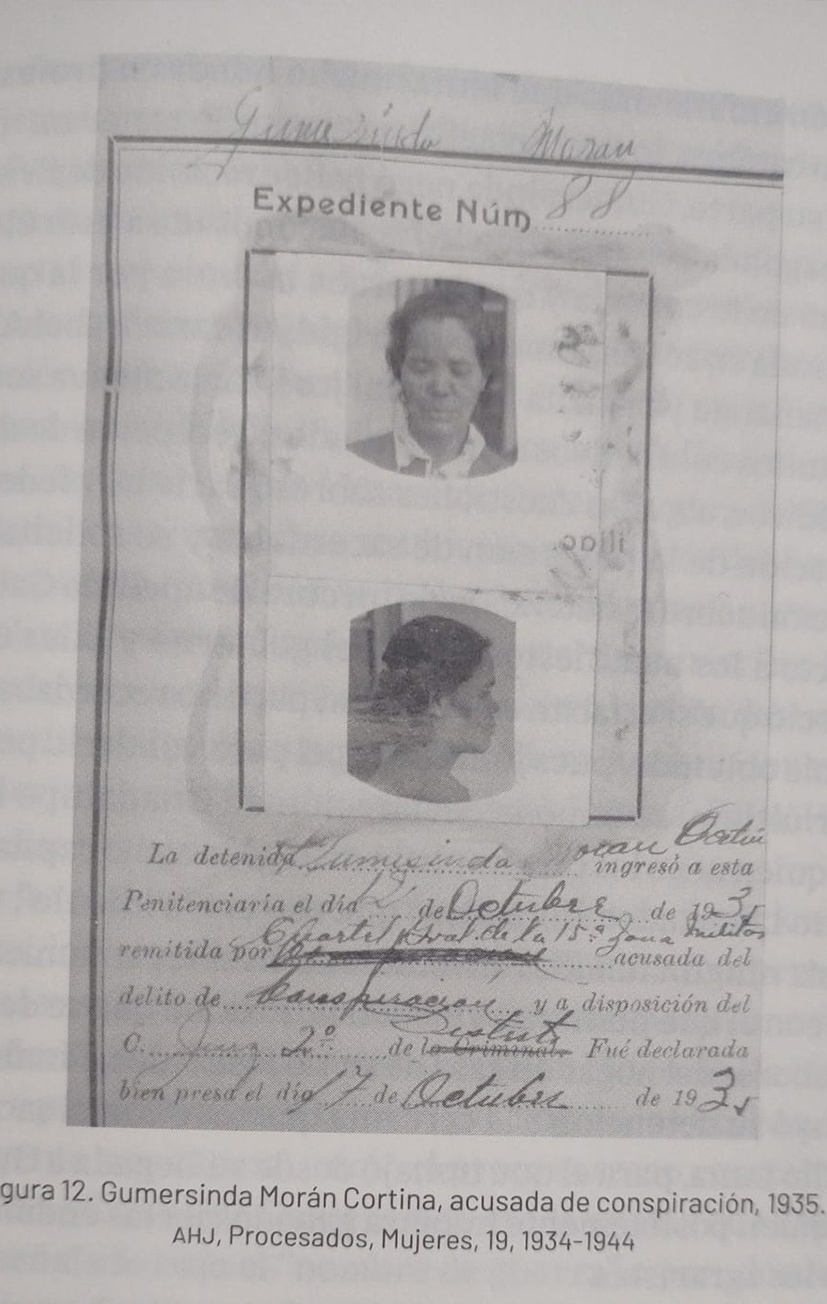 Gumersinda Moran
Expediente Núm 88
La detenida Gumersinda Moran Cortin
ingresó a esta
Penitenciaría el día 12 de Octubre de 1935
Cuartel Gral. de la 15.ª zona militar
remitida por acusada del
delito de Conspiración y a disposición del
Distrito
C. Juez 2º de lo Criminal. Fué declarada
bien presa el día 17 de Octubre de 1935
gura 12. Gumersinda Morán Cortina, acusada de conspiración, 1935.
AHJ, Procesados, Mujeres, 19, 1934-1944